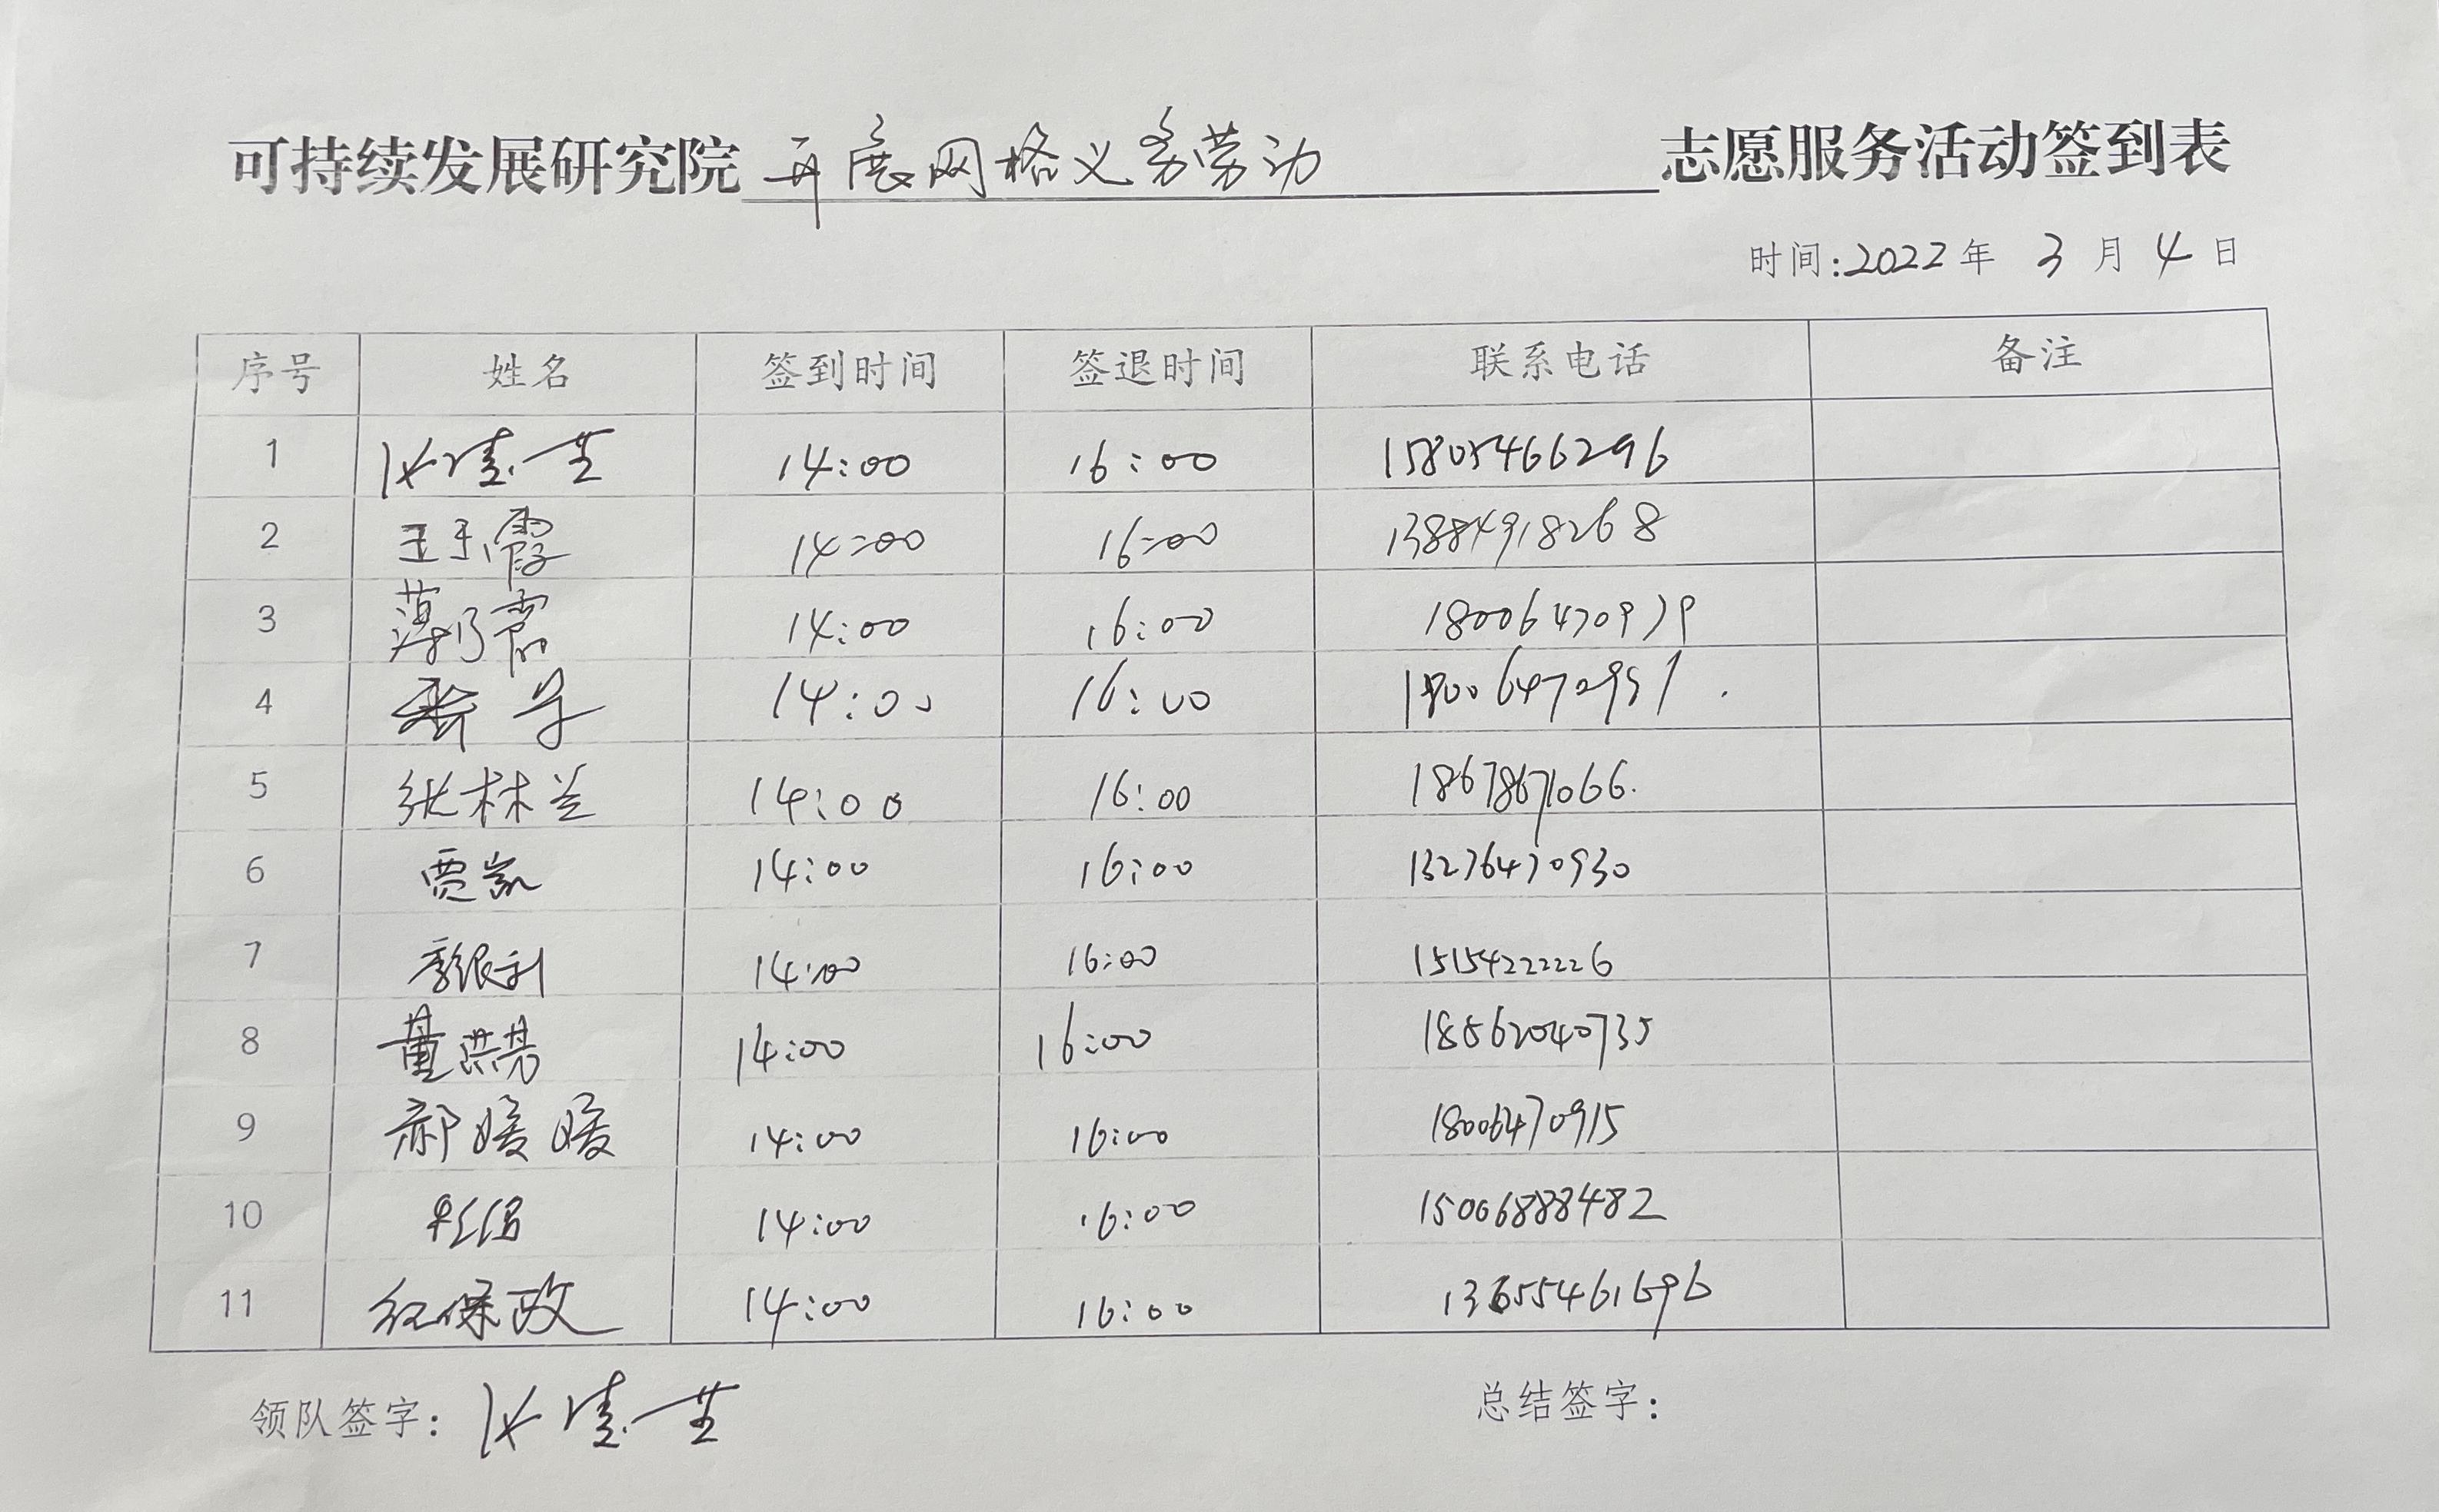 可持续发展研究院 开展网格义务劳动 志愿服务活动签到表
时间:2022年 3月 4日
序号 姓名 签到时间 签退时间 联系电话 备注
1 14:00 16:00 15805466296
2 王玉霞 14:00 16:00 13884918268
3 薄乃霞 14:00 16:00 18006470979
4 14:00 16:00 18006470991
5 张林兰 14:00 16:00 18678671066.
6 贾凯 14:00 16:00 13276470930
7 14:00 16:00 15154222226
8 董洪亮 14:00 16:00 18562040735
9 郝媛媛 14:00 16:00 18006470915
10 14:00 16:00 15006888482
11 红保政 14:00 16:00 13655461696
领队签字: 总结签字: